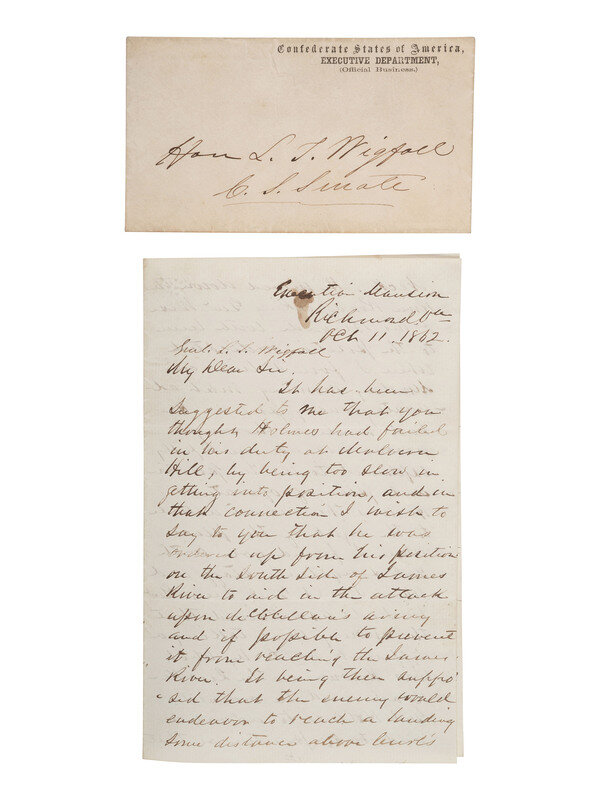 Confederate States of America,
EXECUTIVE DEPARTMENT,
(Official Business.)
Hon L. T. Wigfall
C. S. Senate
Executive Mansion
Richmond Va
Oct 11. 1862.
Genl. L. T. Wigfall
My Dear Sir.
It has been
suggested to me that you
thought Holmes had failed
in his duty at Malvern
Hill, by being too slow in
getting into position, and in
that connection I wish to
say to you that he was
ordered up from his position
on the South side of James
River to aid in the attack
upon McClellan's army
and if possible to prevent
it from reaching the James
River. It being then suppo
sed that the enemy would
endeavor to reach a landing
some distance above Curl's